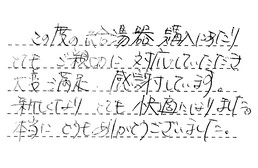 この度の給湯器 購入にあたり
とても ご親切に 対応していただき
大変 満足 感謝しています。
新しくなり とても 快適になりました。
本当に どうもありがとうございました。